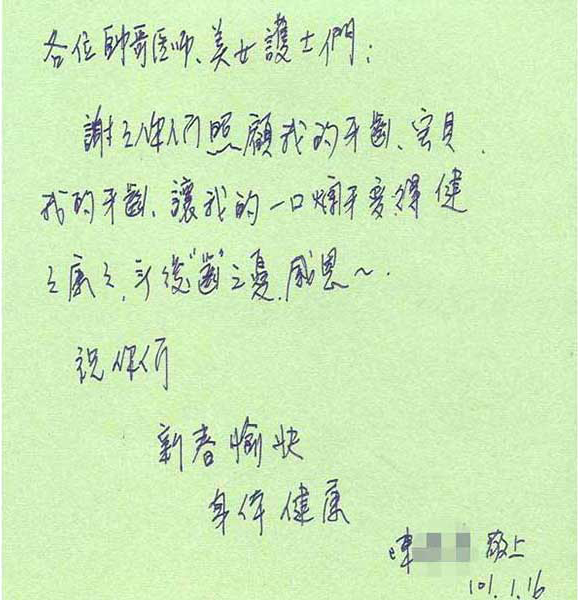 各位帥哥医师、美女護士們:
謝々你们照顧我的牙齒、宝貝
我的牙齒、讓我的一口爛牙変得健
々康々,少後"齒"之憂,感恩~.
祝你们
新春愉快
身体健康
陳 敬上
101.1.16